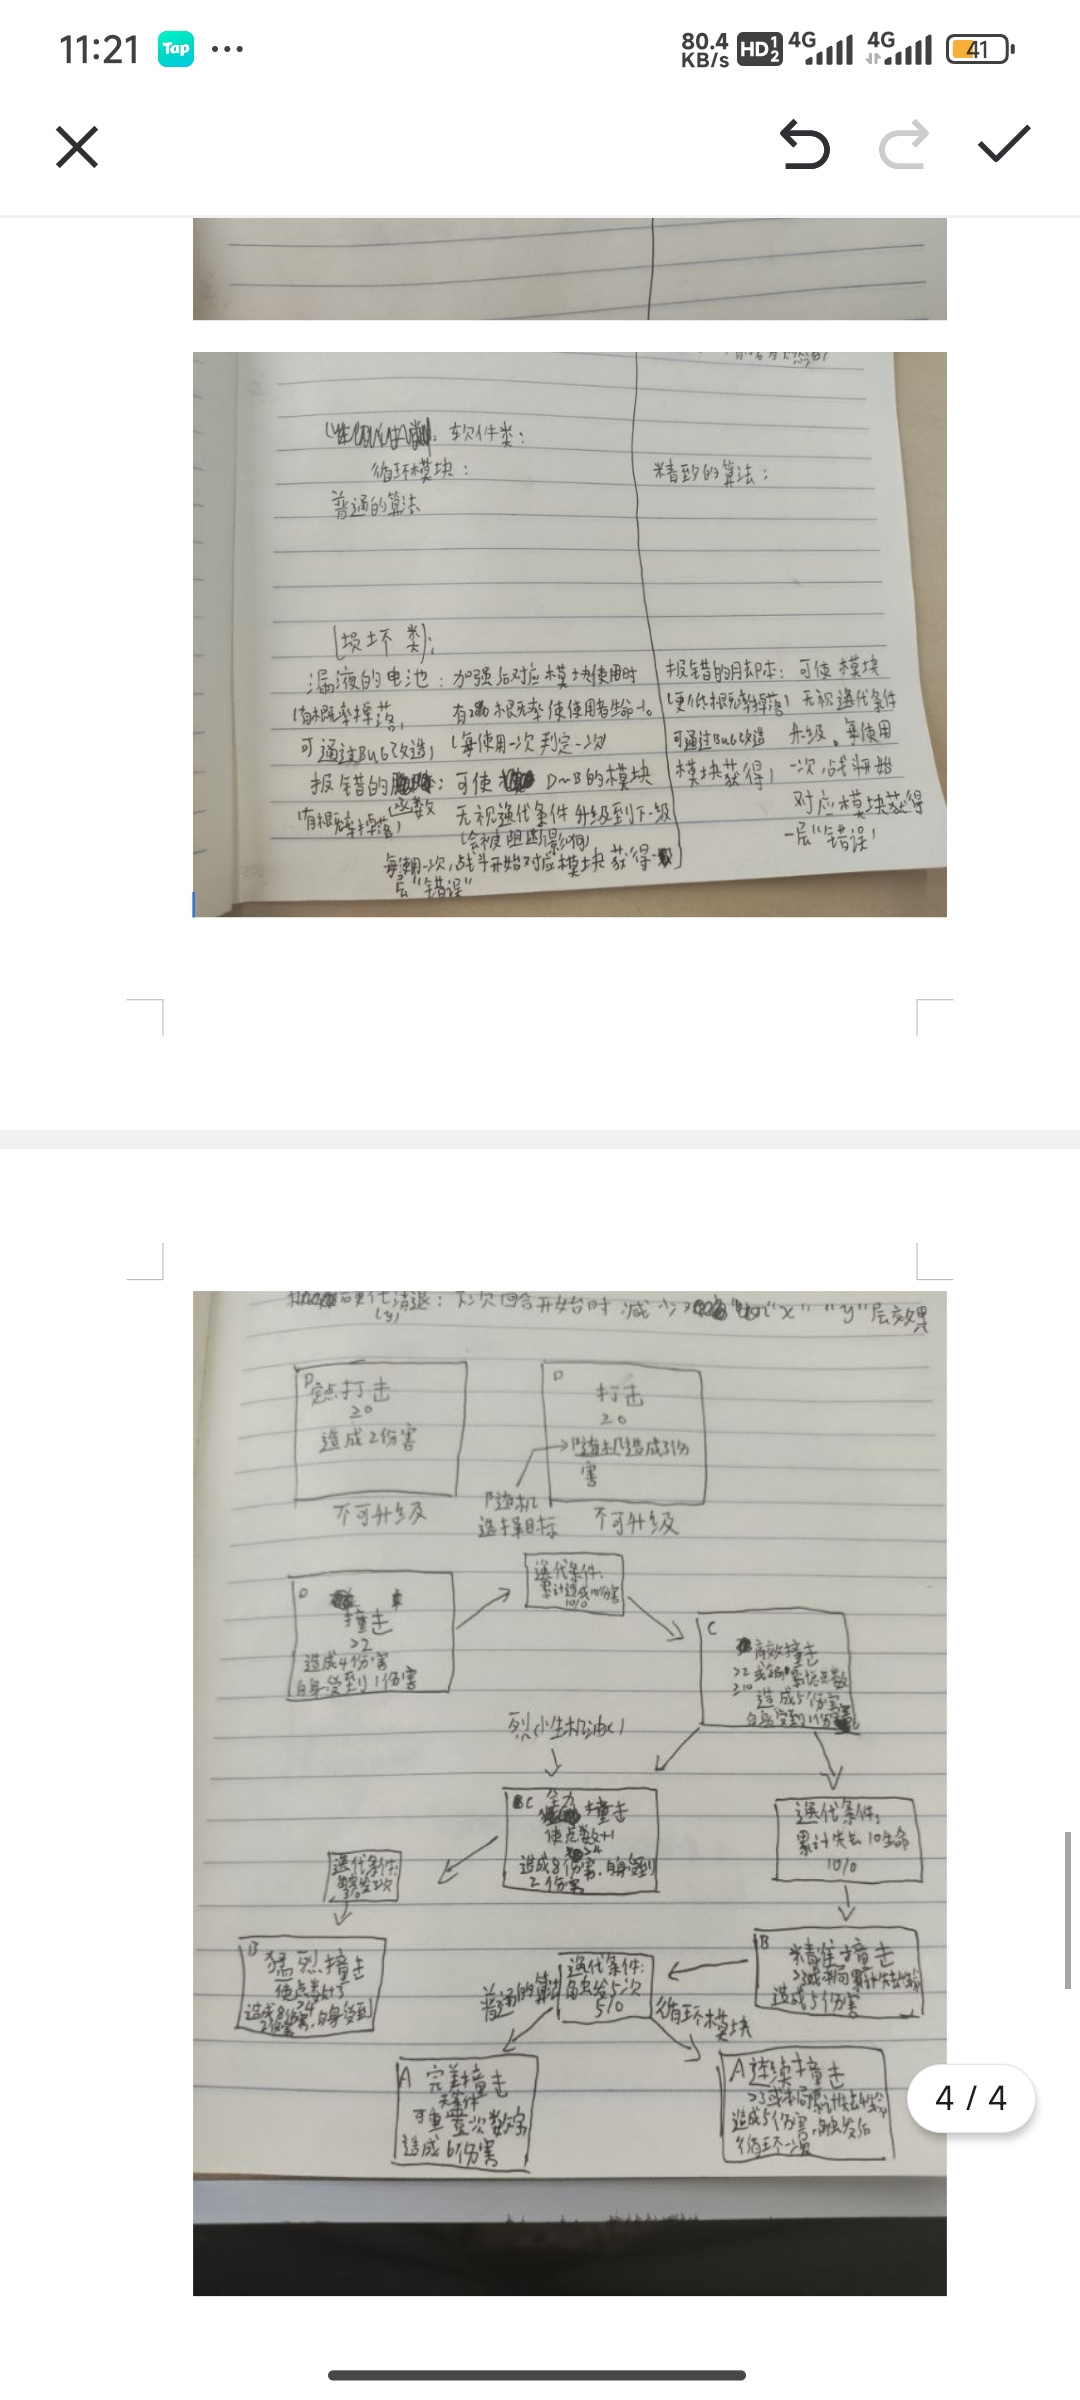 11:21
Tap
80.4
KB/s
HD 1 2
4G
4G
41
软件类:
循环模块:
精致的算法:
普通的算法
[损坏类]:
漏液的电池: 加强后对应模块使用时
(有概率掉落, 有 概率使使用者生命-1。
可通过BUG改造) (每使用一次判定一次)
报错的函数: 可使 D~B的模块
(有概率掉落) 无视迭代条件升级到下一级
(会被阻断影响)
每使用一次,战斗开始对应模块获得一
层"错误"
报错的 : 可使模块
(更低概率掉落) 无视迭代条件
可通过BUG改造 升级。每使用
模块获得) 一次,战斗开始
对应模块获得
一层"错误"
清退: 每次回合开始时减少 "x" "y"层效果
(y)
D
定点打击
≥0
造成2伤害
不可升级
D
打击
≥0
随机造成3伤
害
随机
选择目标
不可升级
迭代条件:
累计造成10伤害
10/0
D
撞击
>2
造成4伤害
自身受到1伤害
C
高效撞击
>2
≥10
造成5伤害
自身受到1伤害
烈性机油
C 全力撞击
使点数+1
>4
造成8伤害,自身受到
2伤害
迭代条件:
累计失去10生命
10/0
迭代条件:
B
猛烈撞击
使点数+3
>4
造成8伤害,自身受到
2伤害
普通的算法
迭代条件:
触发5次
5/0
循环模块
B
精准撞击
造成5伤害
A 完美撞击
无条件
可重置一次数字
造成6伤害
A 连续撞击
造成5伤害,触发后
循环一次
4 / 4